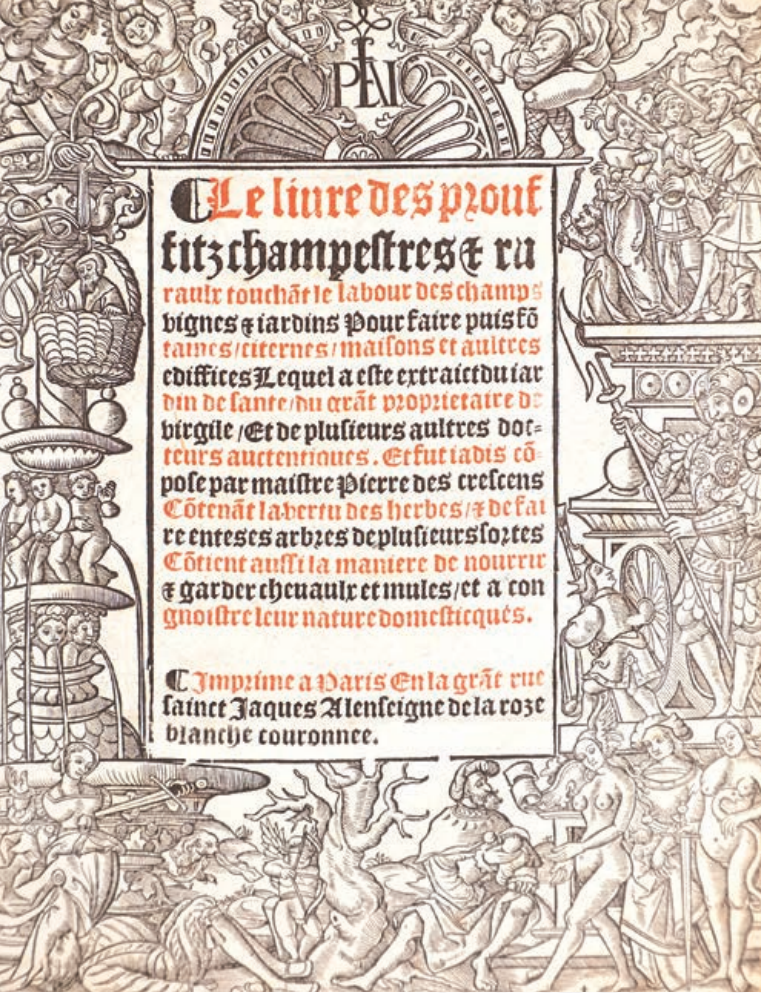 PAL
Le liure des prouf
fitz champestres & ru
raulx touchãt le labour des champs
vignes & iardins Pour faire puis fõ
taines / citernes / maisons et aultres
ediffices Lequel a este extraict du iar
din de sante / du grãt proprietaire de
virgile / Et de plusieurs aultres doc=
teurs auctentiques. Et fut iadis cõ
pose par maistre Pierre des crescens
Cõtenãt la vertu des herbes / & de fai
re enteses arbres de plusieurs sortes
Cõtient aussi la maniere de nourrir
& garder cheuaulx et mules / et a con
gnoistre leur nature domesticqués.
Imprime a Paris En la grãt rue
sainct Jaques A lenseigne de la roze
blanche couronnee.